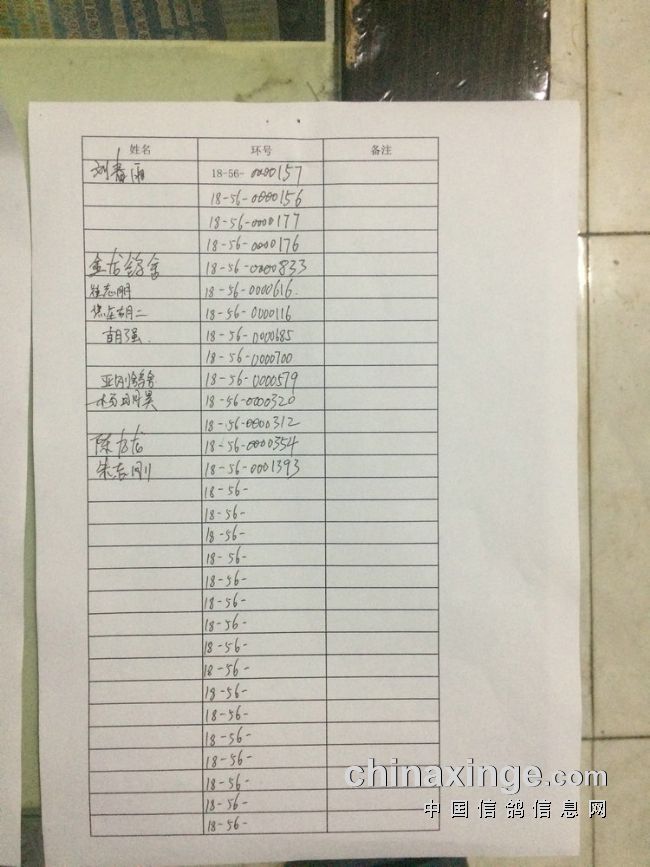 姓名 环号 备注
刘春雨 18-56-0000157
18-56-0000156
18-56-0000177
18-56-0000176
金龙鸽舍 18-56-0000833
18-56-0000616
胡二 18-56-0000116
胡强 18-56-0000685
18-56-0000700
亚刚鸽舍 18-56-0000579
杨明昊 18-56-0000320
18-56-0000312
陈龙 18-56-0000354
朱志刚 18-56-0001393
18-56-
18-56-
18-56-
18-56-
18-56-
18-56-
18-56-
18-56-
18-56-
18-56-
18-56-
18-56-
18-56-
18-56-
18-56-
18-56-
chinaxinge.com
中国信鸽信息网